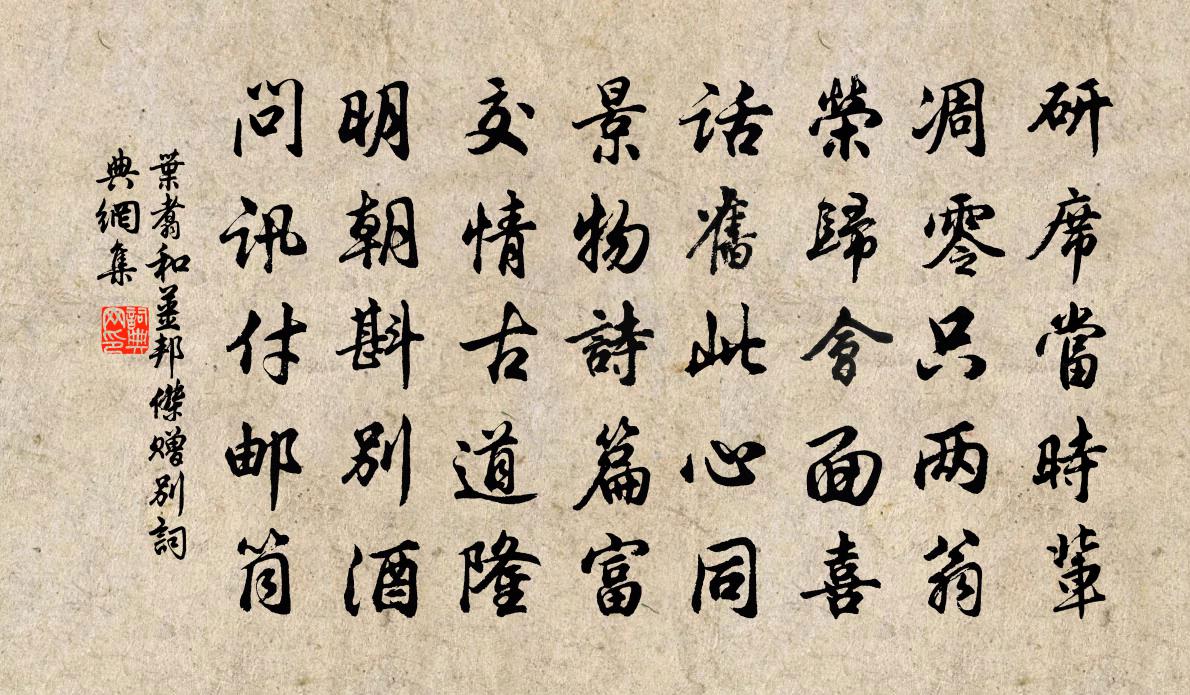 研席當時輩
凋零只两翁
榮歸會面喜
話舊此心同
景物詩篇富
交情古道隆
明朝斟別酒
問訊付邮筒
葉翥和姜邦傑赠别詞
典網集
詞典
网印